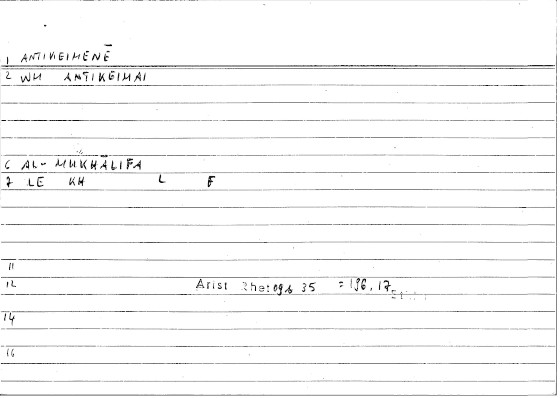 1 ANTIKEIMENĒ
2 WM ANTIKEIMAI
6 AL-MUKHĀLIFA
7 LE KH L F
11
12 Arist Rhet 09b 35 = 196,17
14
16